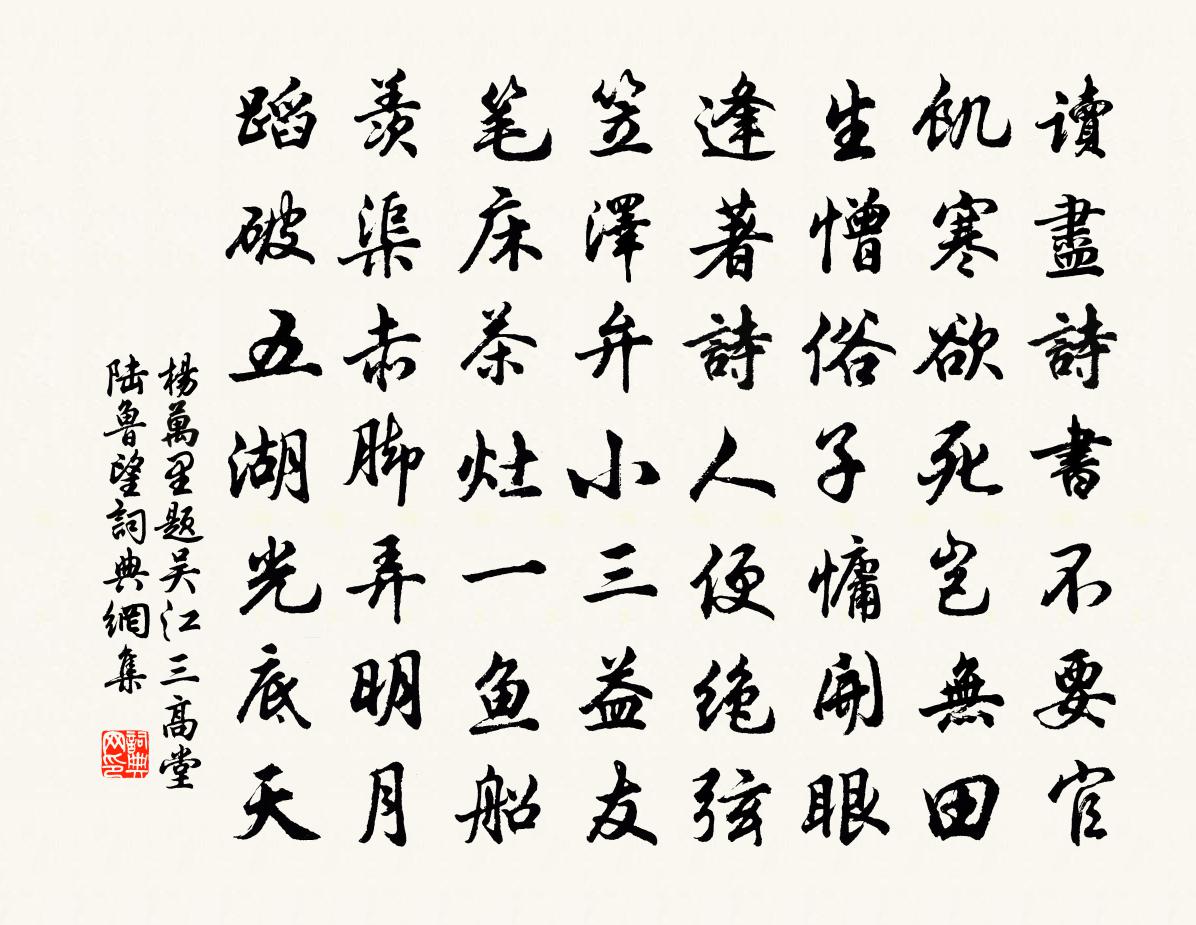 讀盡詩書不要官
飢寒欲死豈無田
生憎俗子慵開眼
逢著詩人便絶弦
笠澤弁小三益友
笔床茶灶一鱼船
羨渠赤脚弄明月
蹈破五湖光底天
楊萬里題吴江三高堂
陆魯望詞典網集
詞典
网印